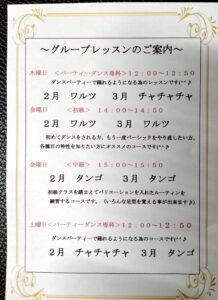 ～グループレッスンのご案内～
水曜日 <パーティーダンス専科>12：00～12：50
ダンスパーティーで踊れるようになる為のレッスンです(^^♪
2月 ワルツ 3月 チャチャチャ
金曜日 <初級> 14：00～14：50
2月 ワルツ 3月 ワルツ
初めてダンスをされる方、もう一度ベーシックをやり直したい方、
各種目の特性を知りたい方にオススメのコースです(^^)
金曜日 <中級> 15：00～15：50
2月 タンゴ 3月 タンゴ
初級クラスを踏まえてバリエーションを入れたルーティンを
練習するコースです。(いろんな足型を覚える事が出来ます♪)
土曜日<パーティーダンス専科>12：00～12：50
ダンスパーティーで踊れるようになる為のコースです(^^)
2月 チャチャチャ 3月 タンゴ